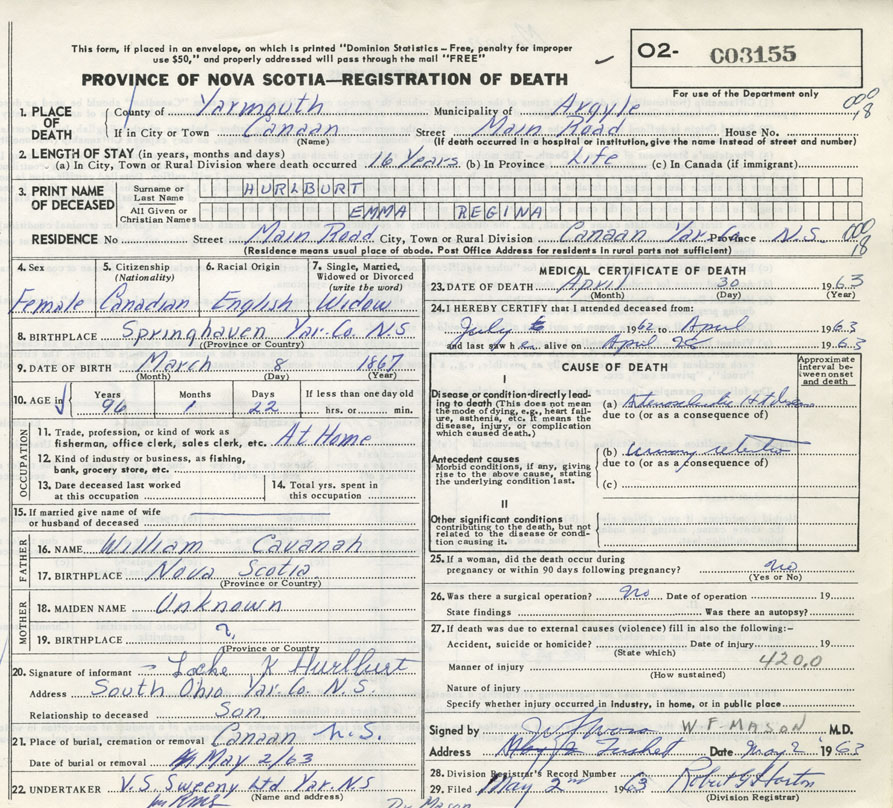 This form, if placed in an envelope, on which is printed "Dominion Statistics – Free, penalty for improper
use $50," and properly addressed will pass through the mail "FREE"
O2- C03155
PROVINCE OF NOVA SCOTIA—REGISTRATION OF DEATH
For use of the Department only
1. PLACE OF DEATH
County of Yarmouth Municipality of Argyle
If in City or Town Canaan Street Main Road House No.
(Name) (If death occurred in a hospital or institution, give the name instead of street and number)
2. LENGTH OF STAY (in years, months and days)
(a) In City, Town or Rural Division where death occurred 16 Years (b) In Province Life (c) In Canada (if immigrant)
3. PRINT NAME OF DECEASED
Surname or Last Name HURLBURT
All Given or Christian Names EMMA REGINA
RESIDENCE No Street Main Road City, Town or Rural Division Canaan Yar. Co. Province N.S.
(Residence means usual place of abode. Post Office Address for residents in rural parts not sufficient)
4. Sex Female
5. Citizenship (Nationality) Canadian
6. Racial Origin English
7. Single, Married, Widowed or Divorced (write the word) Widow
8. BIRTHPLACE Springhaven Yar. Co. N.S
(Province or Country)
9. DATE OF BIRTH March 8 1867
(Month) (Day) (Year)
10. AGE in Years 96 Months 1 Days 22 If less than one day old hrs. or min.
OCCUPATION
11. Trade, profession, or kind of work as fisherman, office clerk, sales clerk, etc. At Home
12. Kind of industry or business, as fishing, bank, grocery store, etc.
13. Date deceased last worked at this occupation
14. Total yrs. spent in this occupation
15. If married give name of wife or husband of deceased
FATHER
16. NAME William Cavanah
17. BIRTHPLACE Nova Scotia
(Province or Country)
MOTHER
18. MAIDEN NAME Unknown
19. BIRTHPLACE ?
(Province or Country
20. Signature of informant Locke K Hurlburt
Address South Ohio Yar. Co. N.S.
Relationship to deceased Son
21. Place of burial, cremation or removal Canaan N.S.
Date of burial or removal May 2/63
22. UNDERTAKER V.S. Sweeny Ltd Yar. NS
(Name and address)
MEDICAL CERTIFICATE OF DEATH
23. DATE OF DEATH April 30 1963
(Month) (Day) (Year)
24. I HEREBY CERTIFY that I attended deceased from:
July 1962 to April 1963
and last saw her alive on April 1963
CAUSE OF DEATH
Approximate interval between onset and death
I
Disease or condition directly leading to death (This does not mean the mode of dying, e.g., heart failure, asthenia, etc. it means the disease, injury, or complication which caused death.)
(a)
due to (or as a consequence of)
Antecedent causes
Morbid conditions, if any, giving rise to the above cause, stating the underlying condition last.
(b)
due to (or as a consequence of)
(c)
II
Other significant conditions
contributing to the death, but not related to the disease or condition causing it.
25. If a woman, did the death occur during pregnancy or within 90 days following pregnancy? no
(Yes or No)
26. Was there a surgical operation? No Date of operation 19
State findings Was there an autopsy?
27. If death was due to external causes (violence) fill in also the following:–
Accident, suicide or homicide? Date of injury 19
(State which)
Manner of injury 420.0
(How sustained)
Nature of injury
Specify whether injury occurred in industry, in home, or in public place
Signed by W F MASON M.D.
Address Tusket Date May 2 1963
28. Division Registrar's Record Number
29. Filed May 2nd 1963 Robert G Horton
(Division Registrar)
Dr Mason